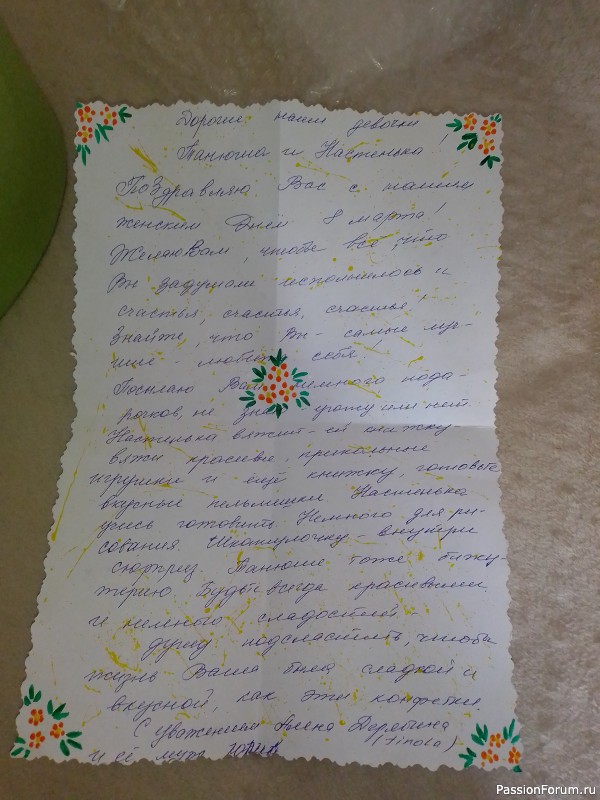 Дорогие наши девочки
Танюша и Настенька!
Поздравляю Вас с нашим
женским Днём 8 марта!
Желаю Вам, чтобы всё, что
Вы задумали исполнилось и
счастья, счастья, счастья!
Знайте, что Вы - самые лу-
чшие - любите себя!
Посылаю Вам немного пода-
рочков, не знаю угожу или нет.
Настенька вяжит - ей книжку
вяжи красивые, прикольные
игрушки и ещё книжку, готовьте
вкусные пельмешки. Настенька
учись готовить. Немного для ри-
сования. Шкатулочку - внутри
сюрприз. Танюше тоже бижу-
терию. Будьте всегда красивыми
и немного сладостей -
душу подсластить, чтобы
жизнь Ваша была сладкой и
вкусной, как эти конфетки.
С уважением Алёна Дерябина
и её муж (Finola)
PassionForum.ru